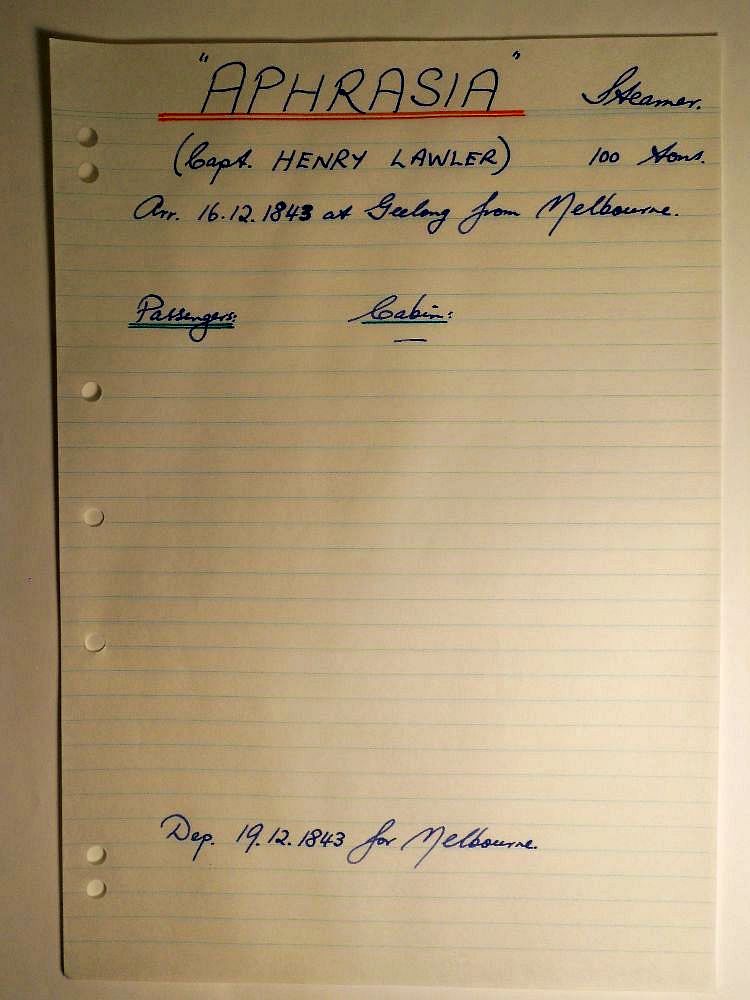 "APHRASIA" Steamer.
(Capt. HENRY LAWLER) 100 tons.
Arr. 16.12.1843 at Geelong from Melbourne.
Passengers: Cabin:
—
Dep. 19.12.1843 for Melbourne.